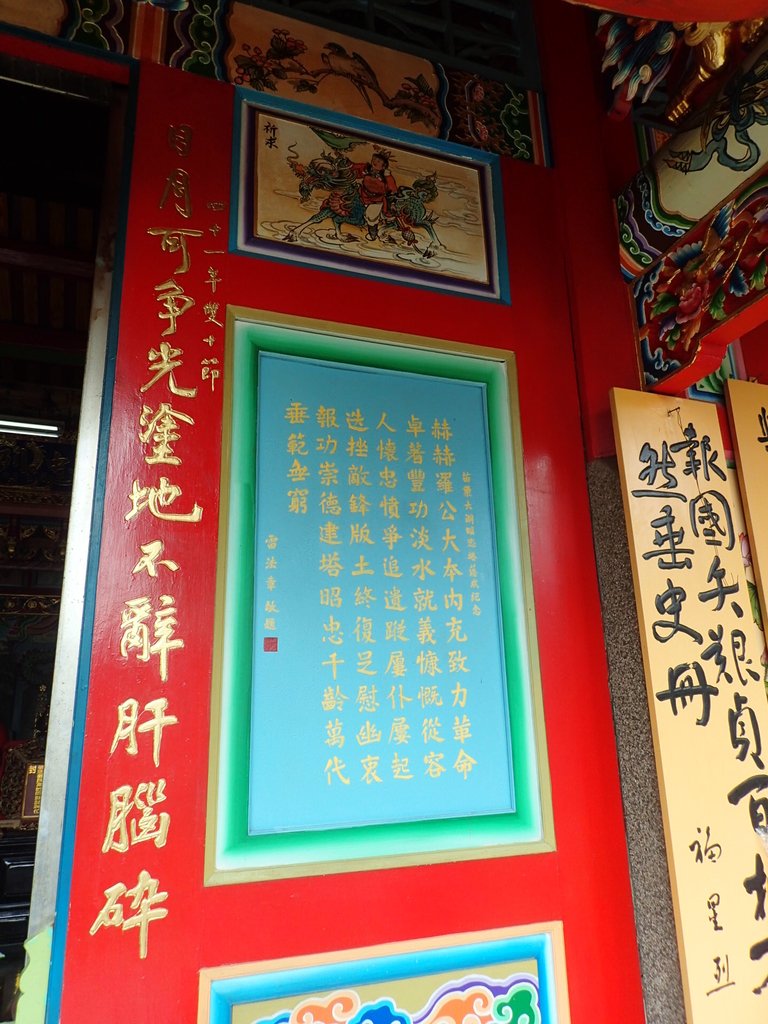 報國矢艱貞百折
然垂史冊
福星烈
祈求
苗栗大湖昭忠塔落成紀念
赫赫羅公大本內充致力革命
卓著豐功淡水就義慷慨從容
人懷忠憤爭追遺蹤屢仆屢起
迭挫敵鋒版土終復足慰幽衷
報功崇德建塔昭忠千齡萬代
垂範無窮
雷法章敬題
四十一年雙十節
日月可爭光塗地不辭肝腦碎